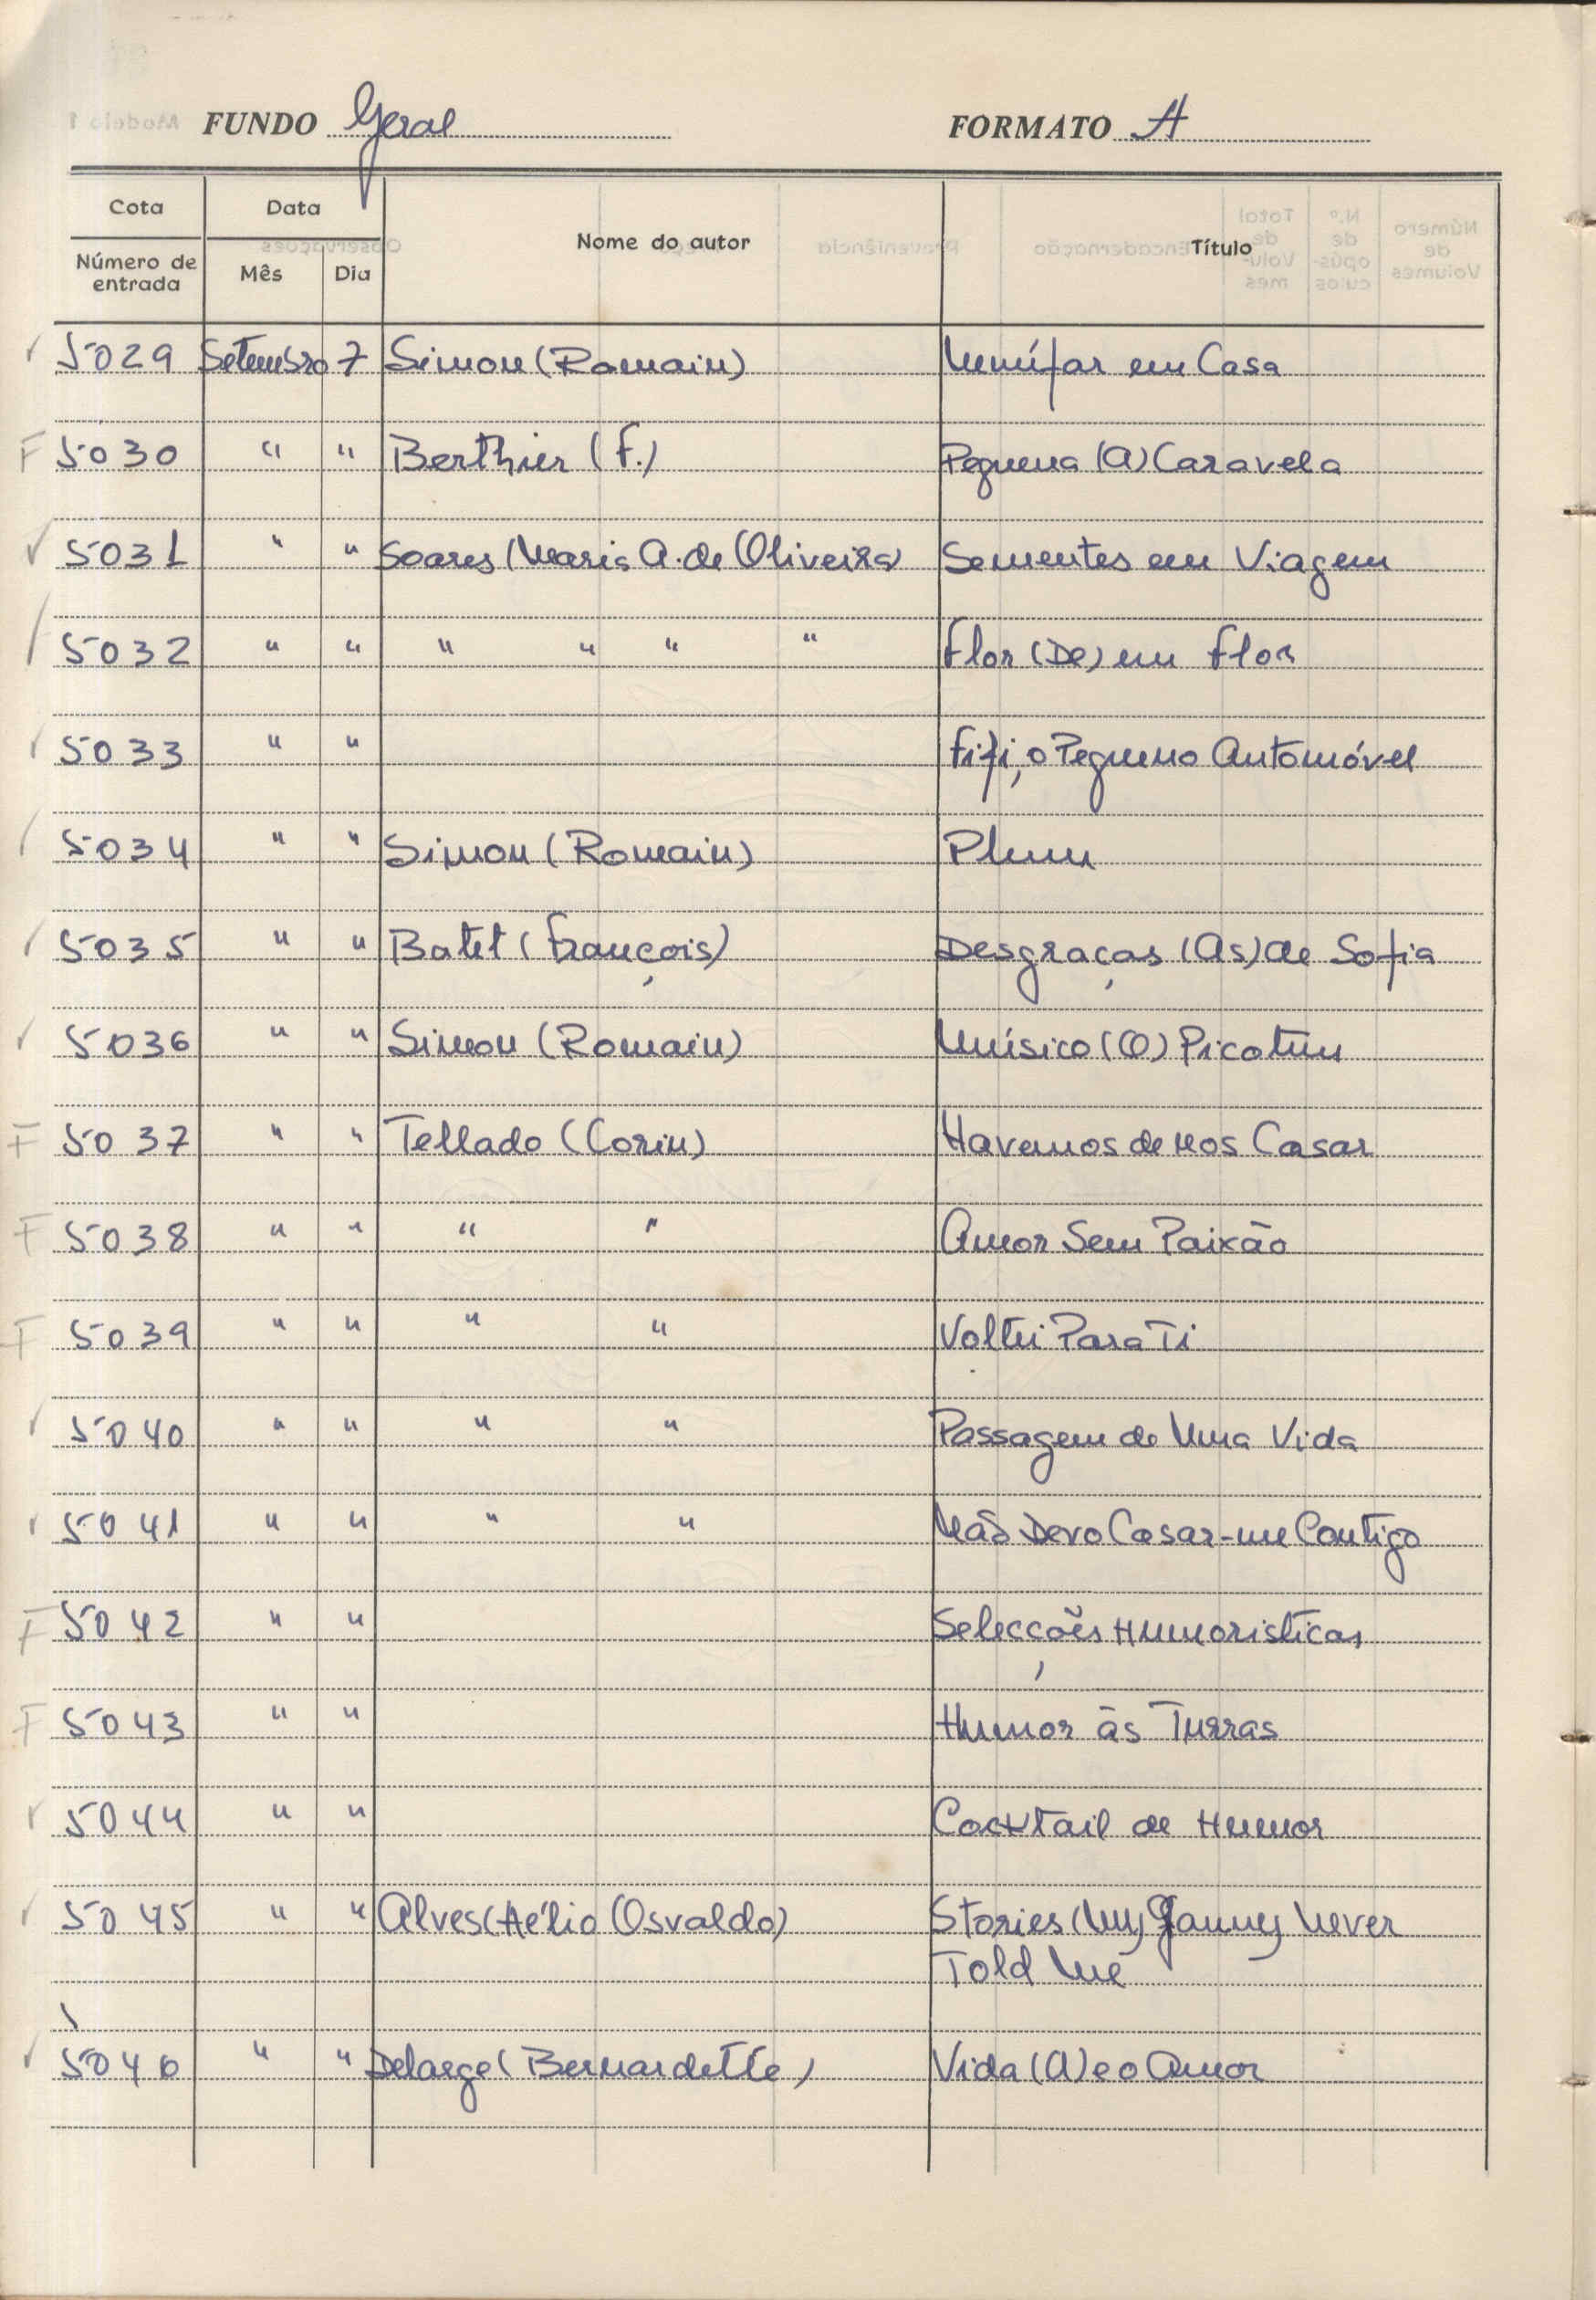 FUNDO Geral FORMATO A
Cota Data Nome do autor Título
Número de entrada Mês Dia
5029 Setembro 7 Simon (Romain) Nenúfar em Casa
F 5030 " " Berthier (F.) Pequena (A) Caravela
5031 " " Soares (Maria A. de Oliveira) Sementes em Viagem
5032 " " " " " " Flor (De) em Flor
5033 " " Fifi, o Pequeno Automóvel
5034 " " Simon (Romain) Plum
5035 " " Batet (François) Desgraças (As) de Sofia
5036 " " Simon (Romain) Músico (O) Picotim
F 5037 " " Tellado (Corin) Havemos de nos Casar
F 5038 " " " " Amor Sem Paixão
F 5039 " " " " Voltei Para Ti
5040 " " " " Passagem de Uma Vida
5041 " " " " Não Devo Casar-me Contigo
F 5042 " " Selecções Humoristicas
F 5043 " " Humor às Turras
5044 " " Cocktail de Humor
5045 " " Alves (Hélio Osvaldo) Stories (My) Ganny Never
Told Me
5046 " " Delarge (Bernardette) Vida (A) e o Amor